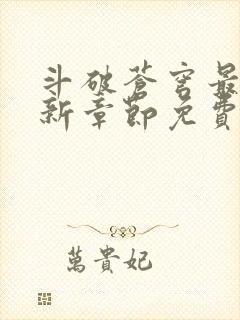 斗破蒼穹最
新章節免費
萬貴妃